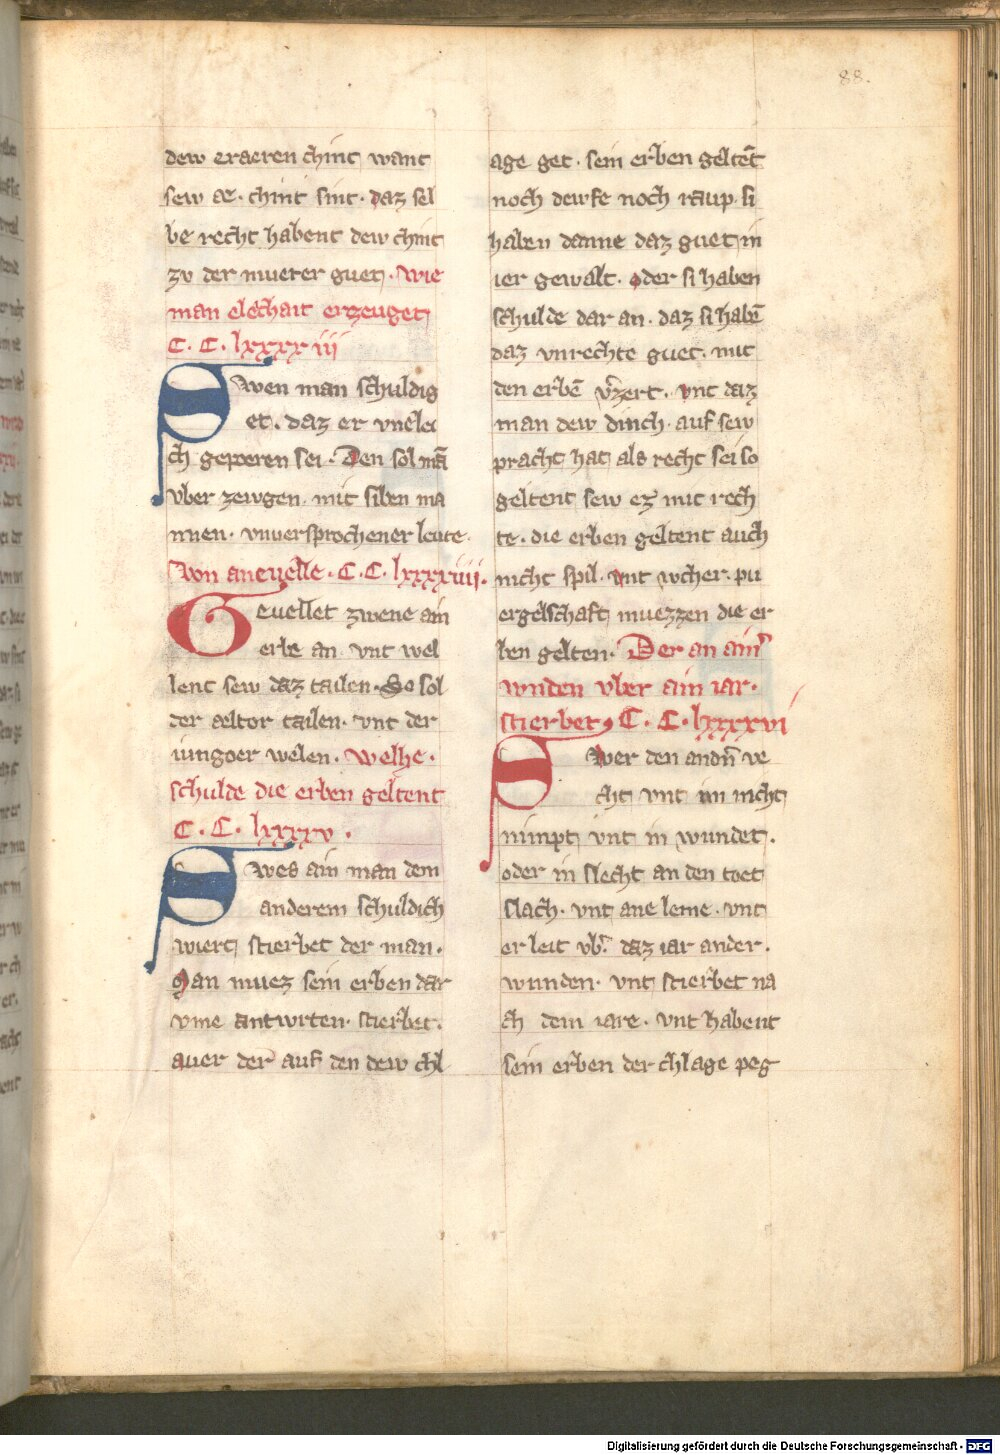 88.
dew eraeren chint want
sew ae. chint sint. daz sel
be recht habent dew chint
zv der mueter guet. Wie
man elechait erzeuget
C. C. lxxxx iii
Swen man schuldig
et. daz er vnelei
ch geporen sei. Den sol mā
vber zewgen. mit siben ma
nnen. vnuersprochener leute.
Von aneuelle. C. C. lxxxxiiii.
Geuellet zwene ain
erbe an. vnt wel
lent sew daz tailen. So sol
der aeltor tailen. vnt der
iungoer welen. Welhe.
schulde die erben geltent
C. C. lxxxxv.
Swes ain man dem
anderem schuldich
wiert stierbet der man.
Man muez sein erben dar
vme antwrten. stierbet.
auer der auf den dew chl
age get. sein erben geltēt
noch dewfe noch raup. si
haben danne daz guet in
ier gewalt. oder si haben
schulde dar an. daz si habē
daz vnrechte guet. mit
den erbē v̄zert. vnt daz
man dew dinch. auf sew
pracht hat als recht sei so
geltent sew ez mit rech
te. die erben geltent auch
nicht spil. vnt wcher. pu
ergelschaft muezzen die er
ben gelten. Der an ain̄
wnden vber ain iar.
stierbet C. C. lxxxxvi
Swer den andn̄ ve
cht vnt im nicht
nimpt vnt in wundet.
oder in slecht an den toet
slach. vnt ane leme. vnt
er leit vb̄. daz iar ander.
wunden. vnt stierbet na
ch dem iare. vnt habent
sein erben der chlage peg
Digitalisierung gefördert durch die Deutsche Forschungsgemeinschaft - DFG